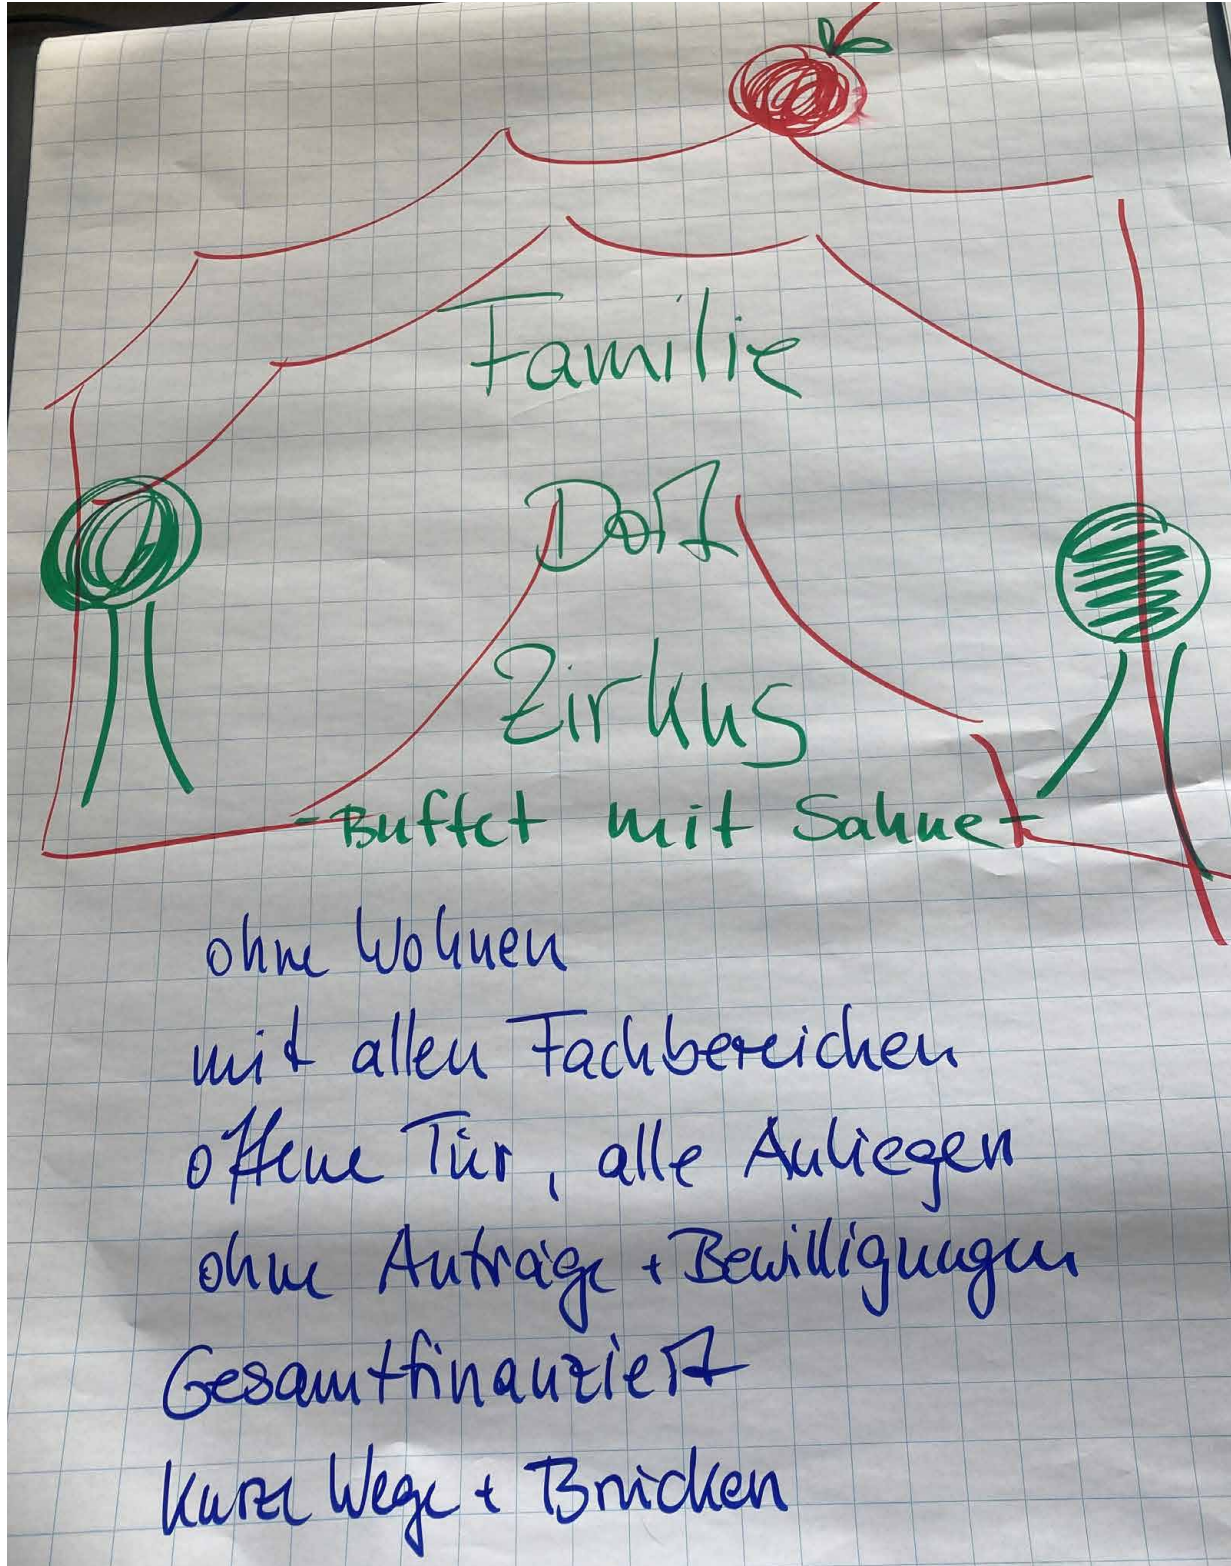 Familie
Dorf
Zirkus
- Buffet mit Sahne -
ohne Wohnen
mit allen Fachbereichen
offene Tür, alle Anliegen
ohne Anträge + Bewilligungen
Gesamtfinanziert
Kurze Wege + Brücken